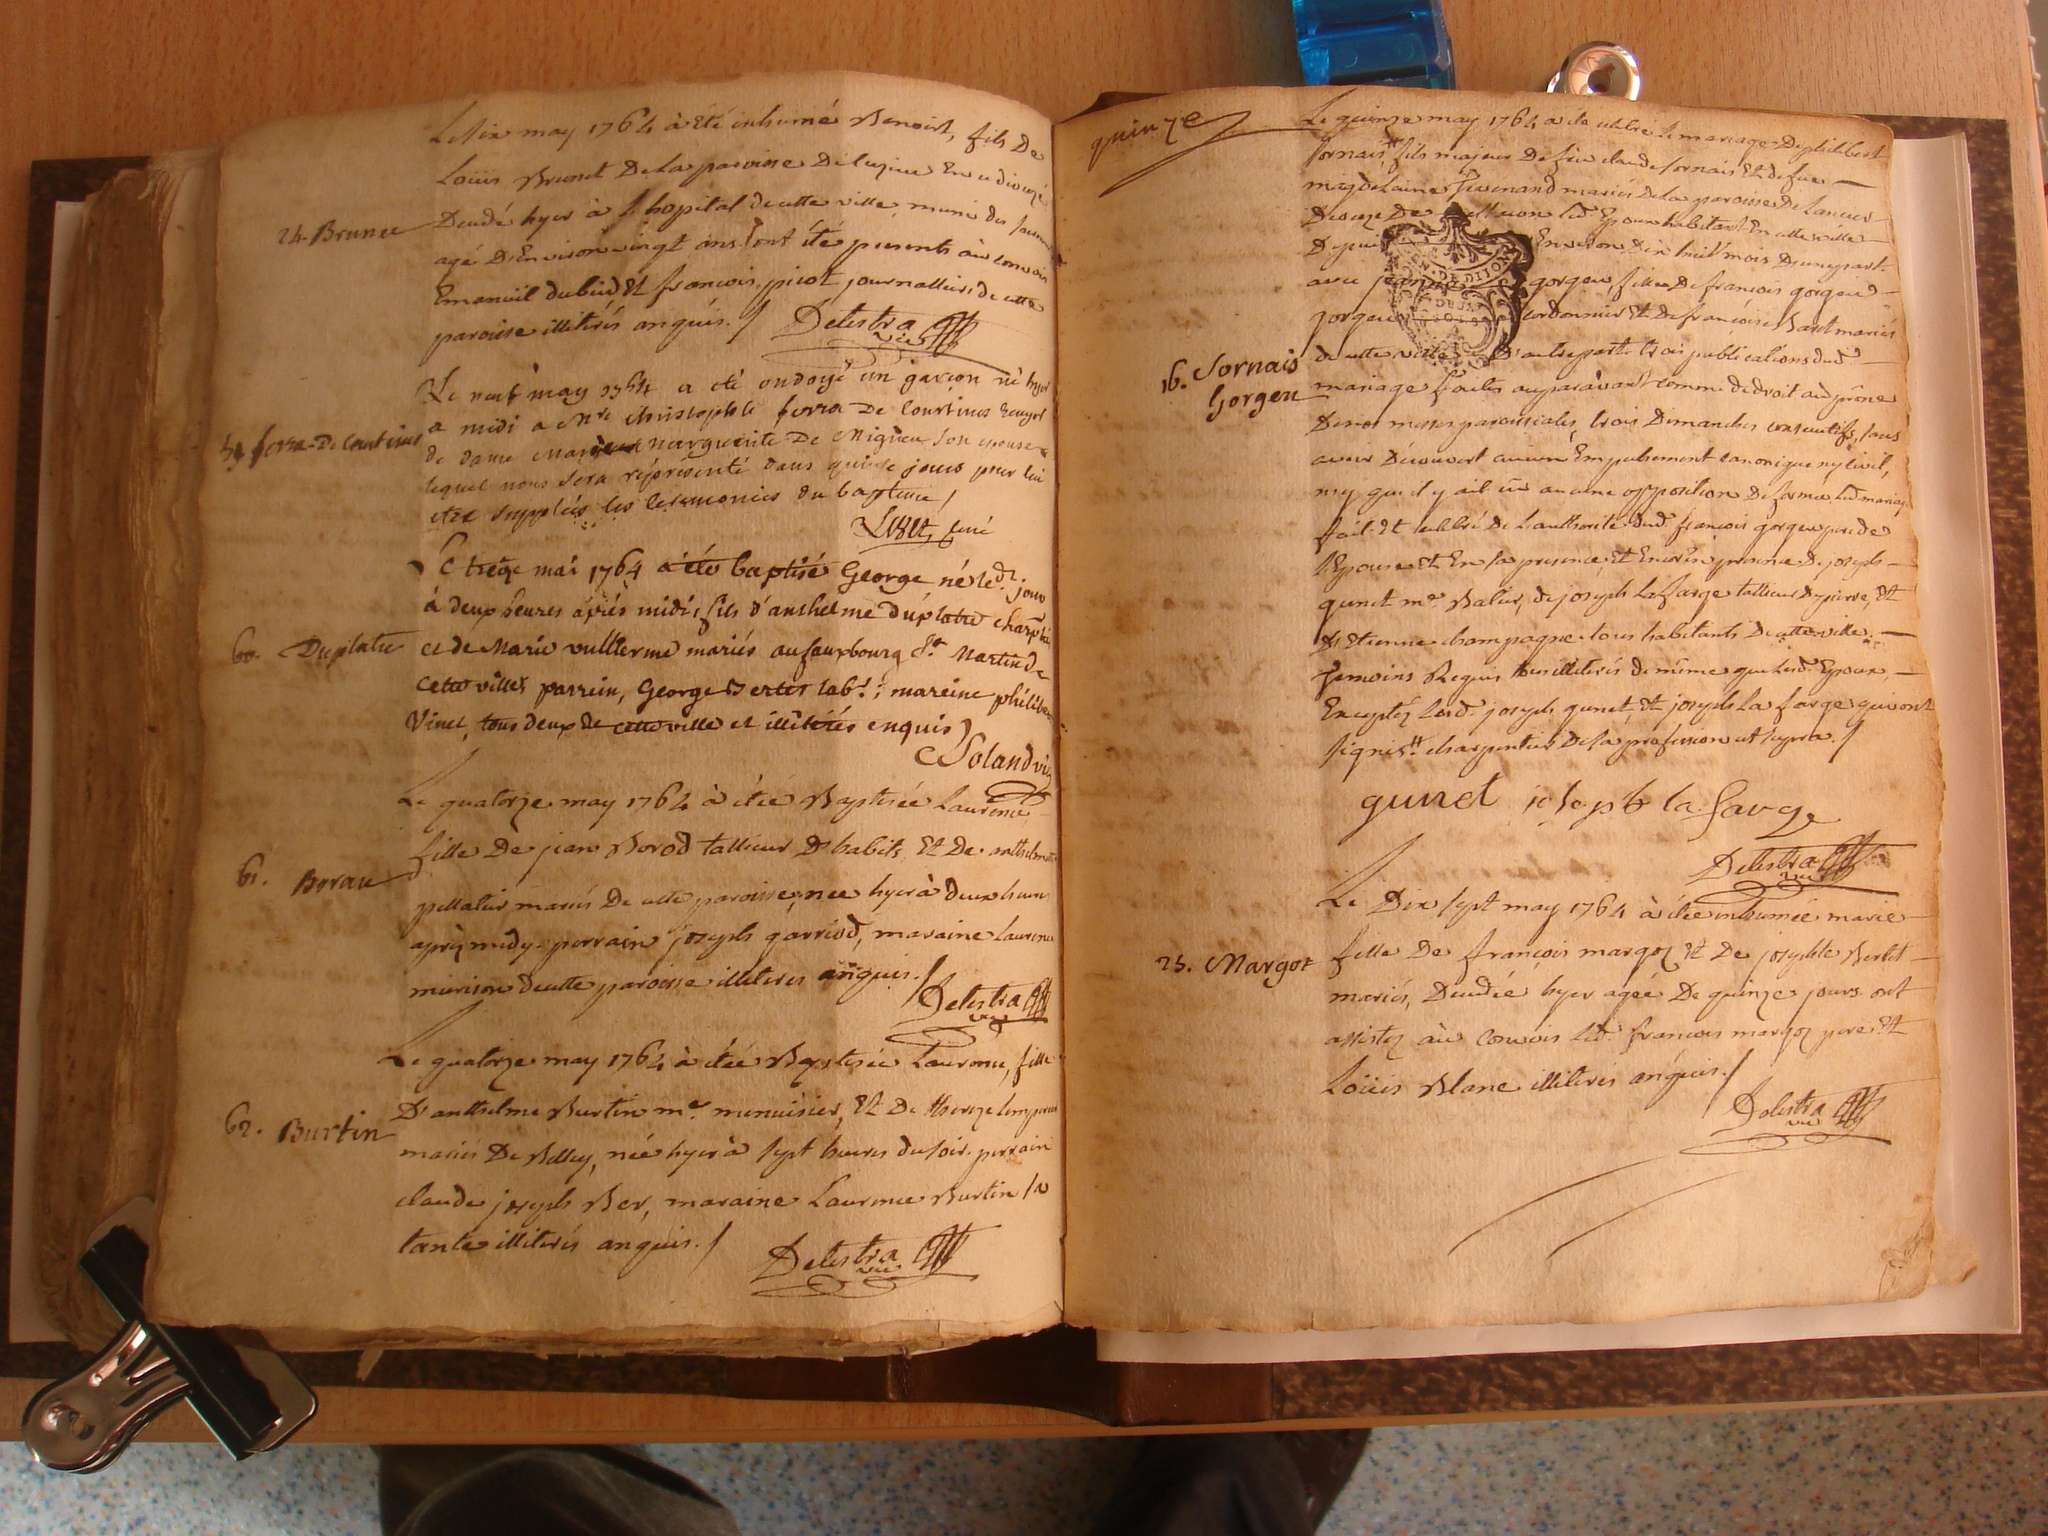 Le six may 1764 à été inhumé Benoist, fils De
Louis Brunet De la paroisse De
24. Brunet
Decédé hyer à l'hopital de cette ville, muni des
agé D'Environ vingt ans. ont été presents au convois
Emanuël dubied Et francois picot journalliers de cette
paroisse illiterés anquis. /
Delestra vic
Le neuf may 1764 a eté ondoyé un garcon né hyer
a midi a Mre christophle forra De Courtines Ecuyer
59 forra-De Courtines
de dame Marguerite De Migieu son epouse
lequel nous sera répresenté dans quinze jours pour lui
etre supplées les ceremonies du bapteme /
curé
Le treize mai 1764 a été baptisé George né led. jour
à deux heures après midi, fils d'anthelme duplatre
60. Duplatre
et de Marie vullierme mariés au fauxbourg St Martin de
cette ville, parrein, George Bertet lab.r; mareine
Vinet, tous deux de cette ville et illitérés enquis
Soland vic
Le quatorze may 1764 à étée Baptisée Laurence
fille De jean Borod tallieur D'habits, Et De
61. Borau
mariés De cette paroisse, née hyer à deux heures
après midy. parrain joseph garriod, maraine Laurence
de cette paroisse illiteres anquis. /
Delestra vic
Le quatorze may 1764 à étée Baptisée Laurence, fille
D'anthelme Burtin me. menuisier, Et De thereze
62. Burtin
mariés De Belley, née hyer à sept heures du soir. parrain
claude joseph Ber, maraine Laurence Burtin sa
tante illiterés anquis. /
Delestra vic
quinze
Le quinze may 1764 a été celebré le mariage De philibert
Sornais, fils majeur De feu claude sornais Et de feue
magdelaine mariés De la paroisse De
Diocèze De led. Epoux habitant En cette ville
Depuis Environ Dix huit mois D'une part
avec gorgeu, fille De francois gorgeu
gorgeu cordonnier Et De francoise mariés
GEN. DE DIJON
de cette ville D'autre part. trois publications dud.
16. Sornais
mariage faites auparavant comme de droit au prône
Gorgeu
De nos messes paroissiales, trois Dimanches consecutifs, sans
avoir Découvert aucun Empechement canonique ny civil,
ny qu'il y ait eû aucune opposition De forme led. mariage
fait Et celebré De l'authorité dud. francois gorgeu pere de
l'Epouse Et En sa presence Et Encore En presence De joseph
gunet me. De joseph Lafarge tallieur De pierre, Et
D'Etienne champagne tous habitants De cette ville
temoins Requis tous illiterés de même que lesd. Epoux,
Exceptéz lesd. joseph gunet, Et joseph la farge qui ont
signés. charpentier De sa profession ut supra. /
gunet joseph la farge
Delestra vic
Le Dix sept may 1764 à étée inhumée marie
25. Margot
fille De francois margoz Et De josephte Berlet
mariés, Decedée hyer agée De quinze jours. ont
assistez au convois led. francois margoz pere Et
Loüis Blanc illiterés anquis. /
Delestra vic